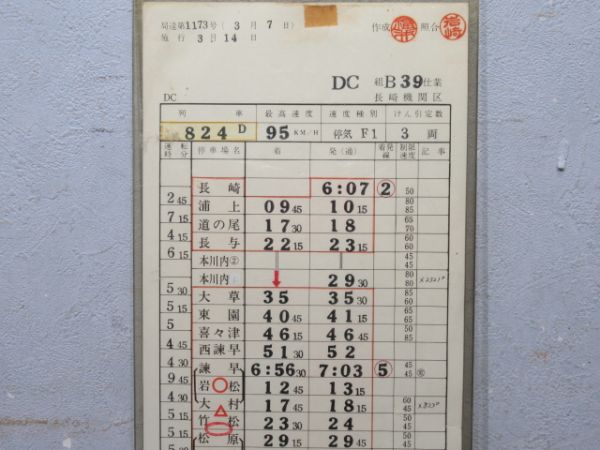 局達第1173号 ( 3 月 7 日 )
施 行 3 月 14 日
作成 照合 岩崎
DC 組 B 39 仕業
DC 長崎機関区
列 車 最高速度 速度種別 けん引定数
824 D 95 KM/H 停気 F1 3 両
運転時分 停車場名 着 発(通) 着発線 制限速度 記事
長崎 6:07 ② 50
2 45
浦上 09 45 10 15 80 85
7 15
道の尾 17 30 18 65 70
4 15
長与 22 15 23 15 60 60
6 15
本川内② 45 45
本川内 29 30 80 80
5 30
大草 35 35 30 85 85
5 15
東園 40 45 41 15 50
5
喜々津 46 15 46 45 85
4 45
西諫早 51 30 52
4 30
諫早 6:56 30 7:03 ⑤ 45 45
9 45
岩松 12 45 13 15
4 30
大村 17 45 18 15 60 45
5 15
竹松 23 30 24
5 15
松原 29 15 29 45